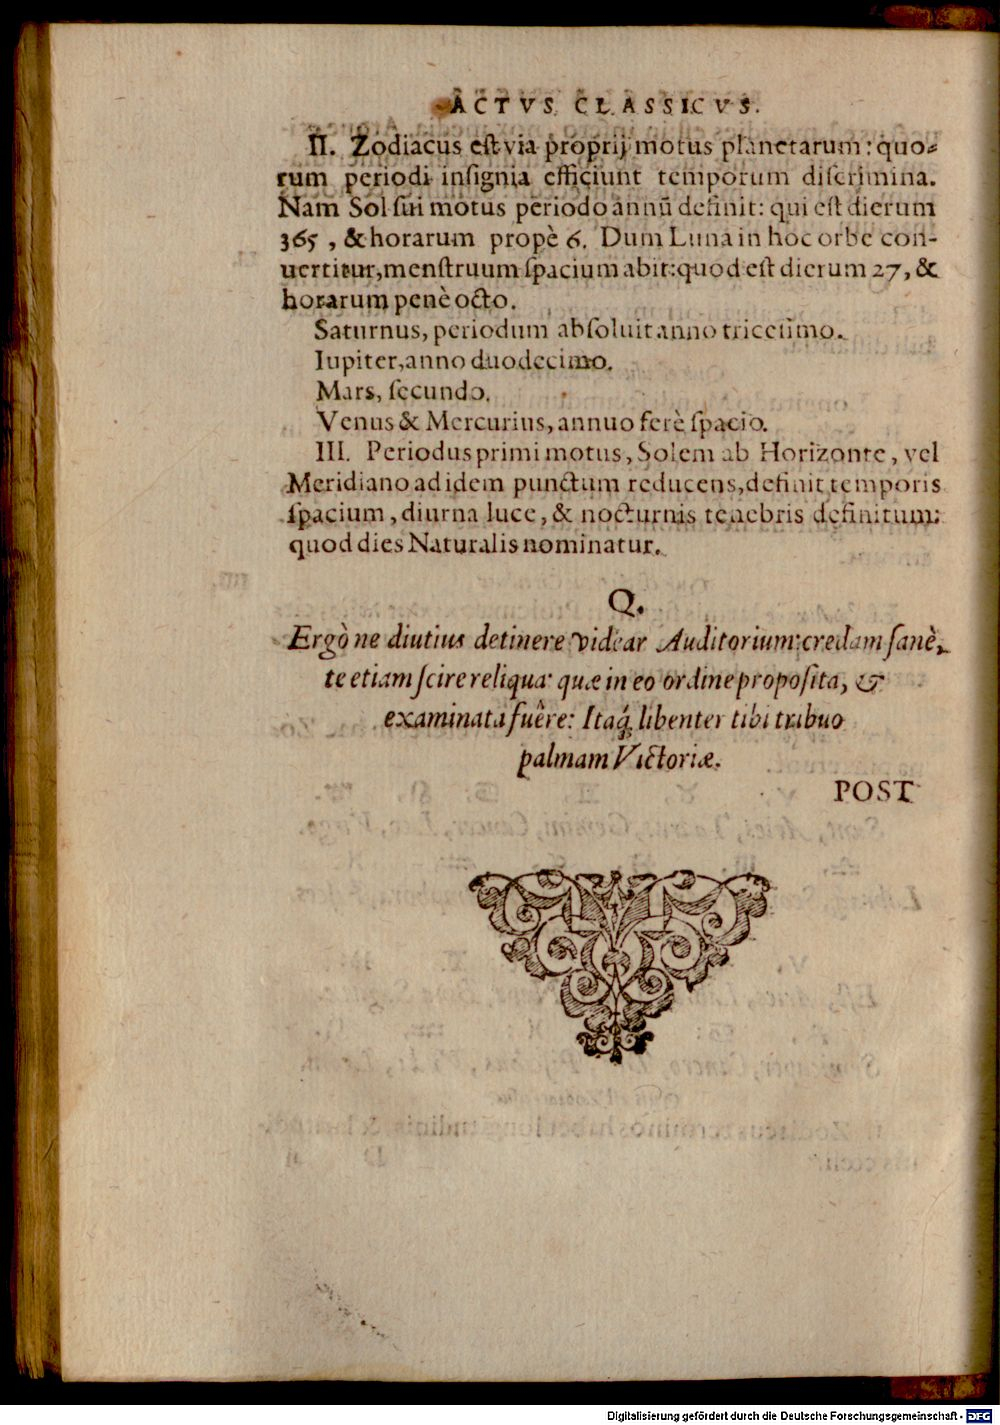 ACTVS CLASSICVS.
II. Zodiacus est via proprij motus planetarum: quo-
rum periodi insignia efficiunt temporum discrimina.
Nam Sol sui motus periodo annū definit: qui est dierum
365, & horarum propè 6. Dum Luna in hoc orbe con-
uertitur, menstruum spacium abit: quod est dierum 27, &
horarum penè octo.
Saturnus, periodum absoluit anno tricesimo.
Iupiter, anno duodecimo.
Mars, secundo.
Venus & Mercurius, annuo ferè spacio.
III. Periodus primi motus, Solem ab Horizonte, vel
Meridiano ad idem punctum reducens, definit temporis
spacium, diurna luce, & nocturnis tenebris definitum:
quod dies Naturalis nominatur.
Q.
Ergò ne diutius detinere videar Auditorium: credam sanè,
te etiam scire reliqua: quæ in eo ordine proposita, &
examinata fuêre: Itaq́; libenter tibi tribuo
palmam Victoriæ.
POST
Digitalisierung gefördert durch die Deutsche Forschungsgemeinschaft - DFG